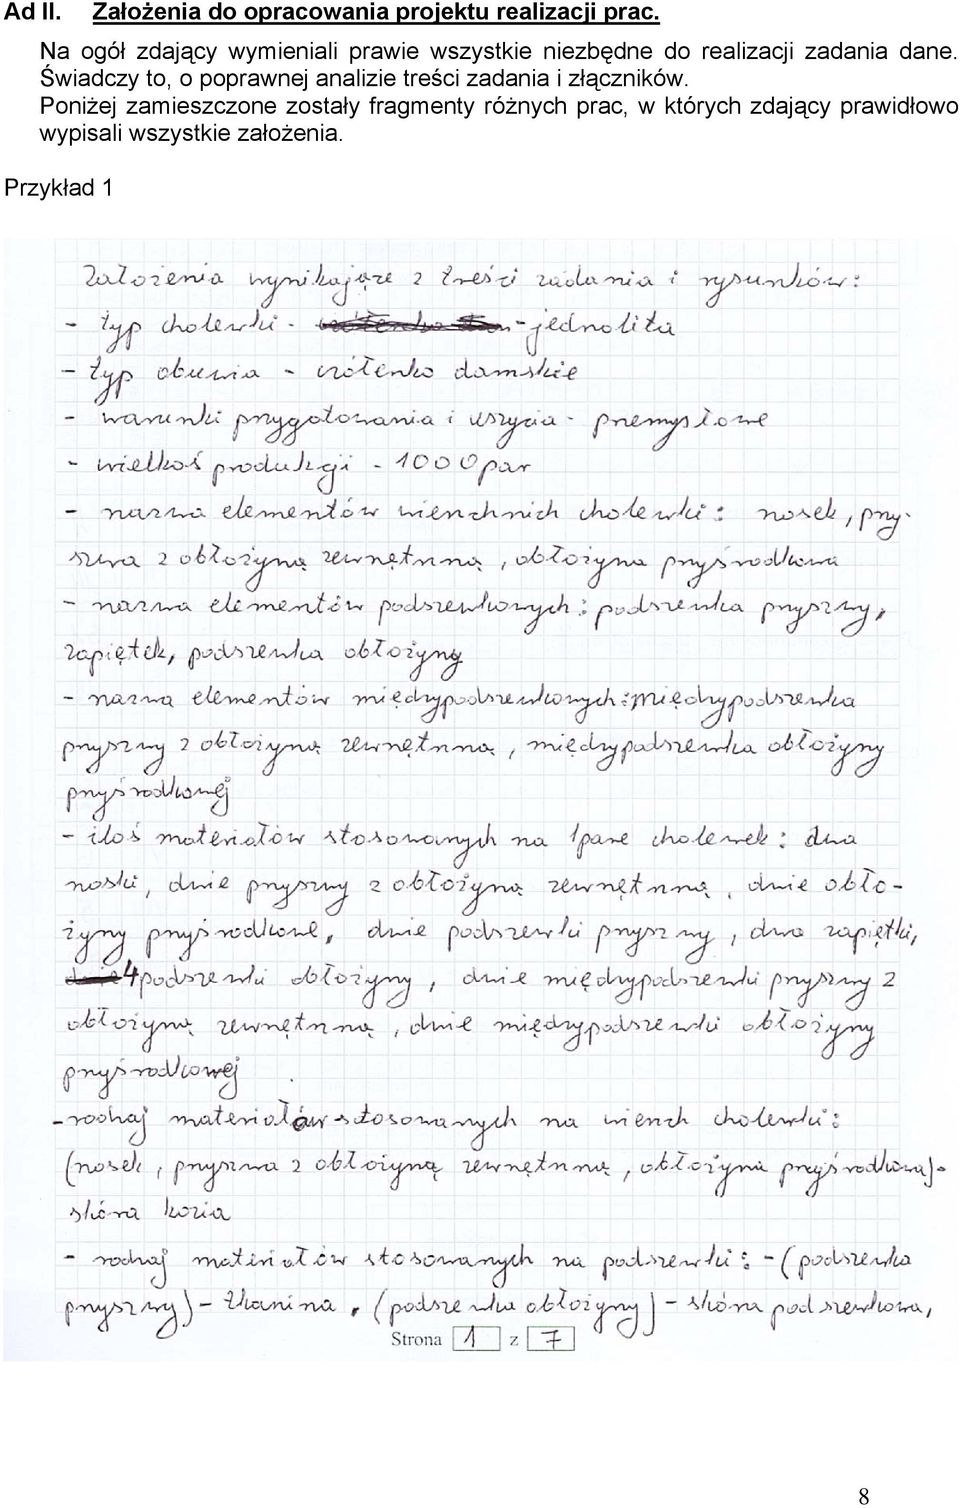 Ad II. Założenia do opracowania projektu realizacji prac.
Na ogół zdający wymieniali prawie wszystkie niezbędne do realizacji zadania dane.
Świadczy to, o poprawnej analizie treści zadania i złączników.
Poniżej zamieszczone zostały fragmenty różnych prac, w których zdający prawidłowo
wypisali wszystkie założenia.
Przykład 1
Założenia wynikające z treści zadania i rysunków:
- typ cholewki - - jednolita
- typ obuwia - czółenko damskie
- warunki przygotowania i uszycia - przemysłowe
- wielkoś produkcji - 1000 par
- nazwa elementów wierzchnich cholewki: nosek, przy-
szwa z obłożyną zewnętrzną, obłożyna przyśrodkowa
- nazwa elementów podszewkowych: podszewka przyszwy,
zapiętek, podszewka obłożyny
- nazwa elementów międzypodszewkowych: międzypodszewka
przyszwy z obłożyną zewnętrzną, międzypodszewka obłożyny
przyśrodkowej
- iloś materiałów stosowanych na 1 parę cholewek: dwa
noski, dwie przyszwy z obłożyną zewnętrzną, dwie obło-
żyny przyśrodkowe, dwie podszewki przyszwy, dwa zapiętki,
4 podszewki obłożyny, dwie międzypodszewki przyszwy z
obłożyną zewnętrzną, dwie międzypodszewki obłożyny
przyśrodkowej
- rodzaj materiałów stosowanych na wierzch cholewki:
(nosek, przyszwa z obłożyną zewnętrzną, obłożyna przyśrodkowa)-
skóra kozia
- rodzaj materiałów stosowanych na podszewki: -(podszewka
przyszwy) - tkanina, (podszewka obłożyny) - skóra podszewkowa,
Strona 1 z 7
8